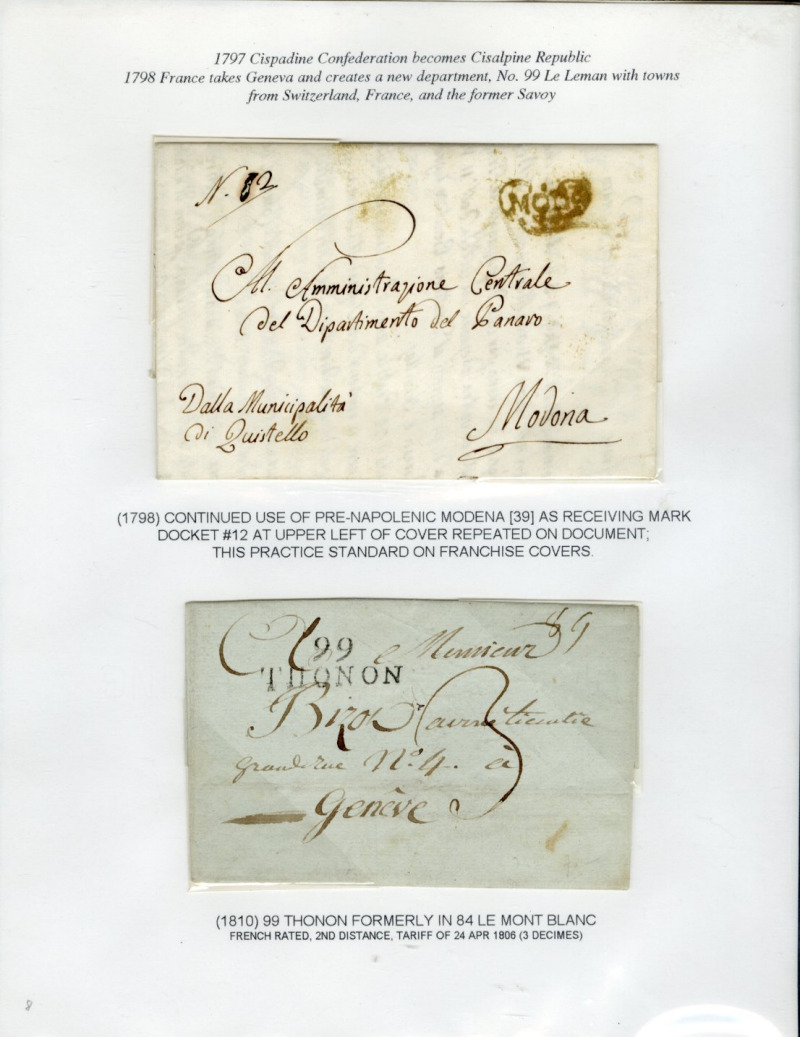 1797 Cispadine Confederation becomes Cisalpine Republic
1798 France takes Geneva and creates a new department, No. 99 Le Leman with towns
from Switzerland, France, and the former Savoy
N. 82
MOD
All. Amministrazione Centrale
del Dipartimento del Panaro
Dalla Municipalità
di Quistello
Modona
(1798) CONTINUED USE OF PRE-NAPOLENIC MODENA [39] AS RECEIVING MARK
DOCKET #12 AT UPPER LEFT OF COVER REPEATED ON DOCUMENT;
THIS PRACTICE STANDARD ON FRANCHISE COVERS.
99
THONON
A Monsieur 89
3
grande rue No. 4. à
Genève
(1810) 99 THONON FORMERLY IN 84 LE MONT BLANC
FRENCH RATED, 2ND DISTANCE, TARIFF OF 24 APR 1806 (3 DECIMES)
8